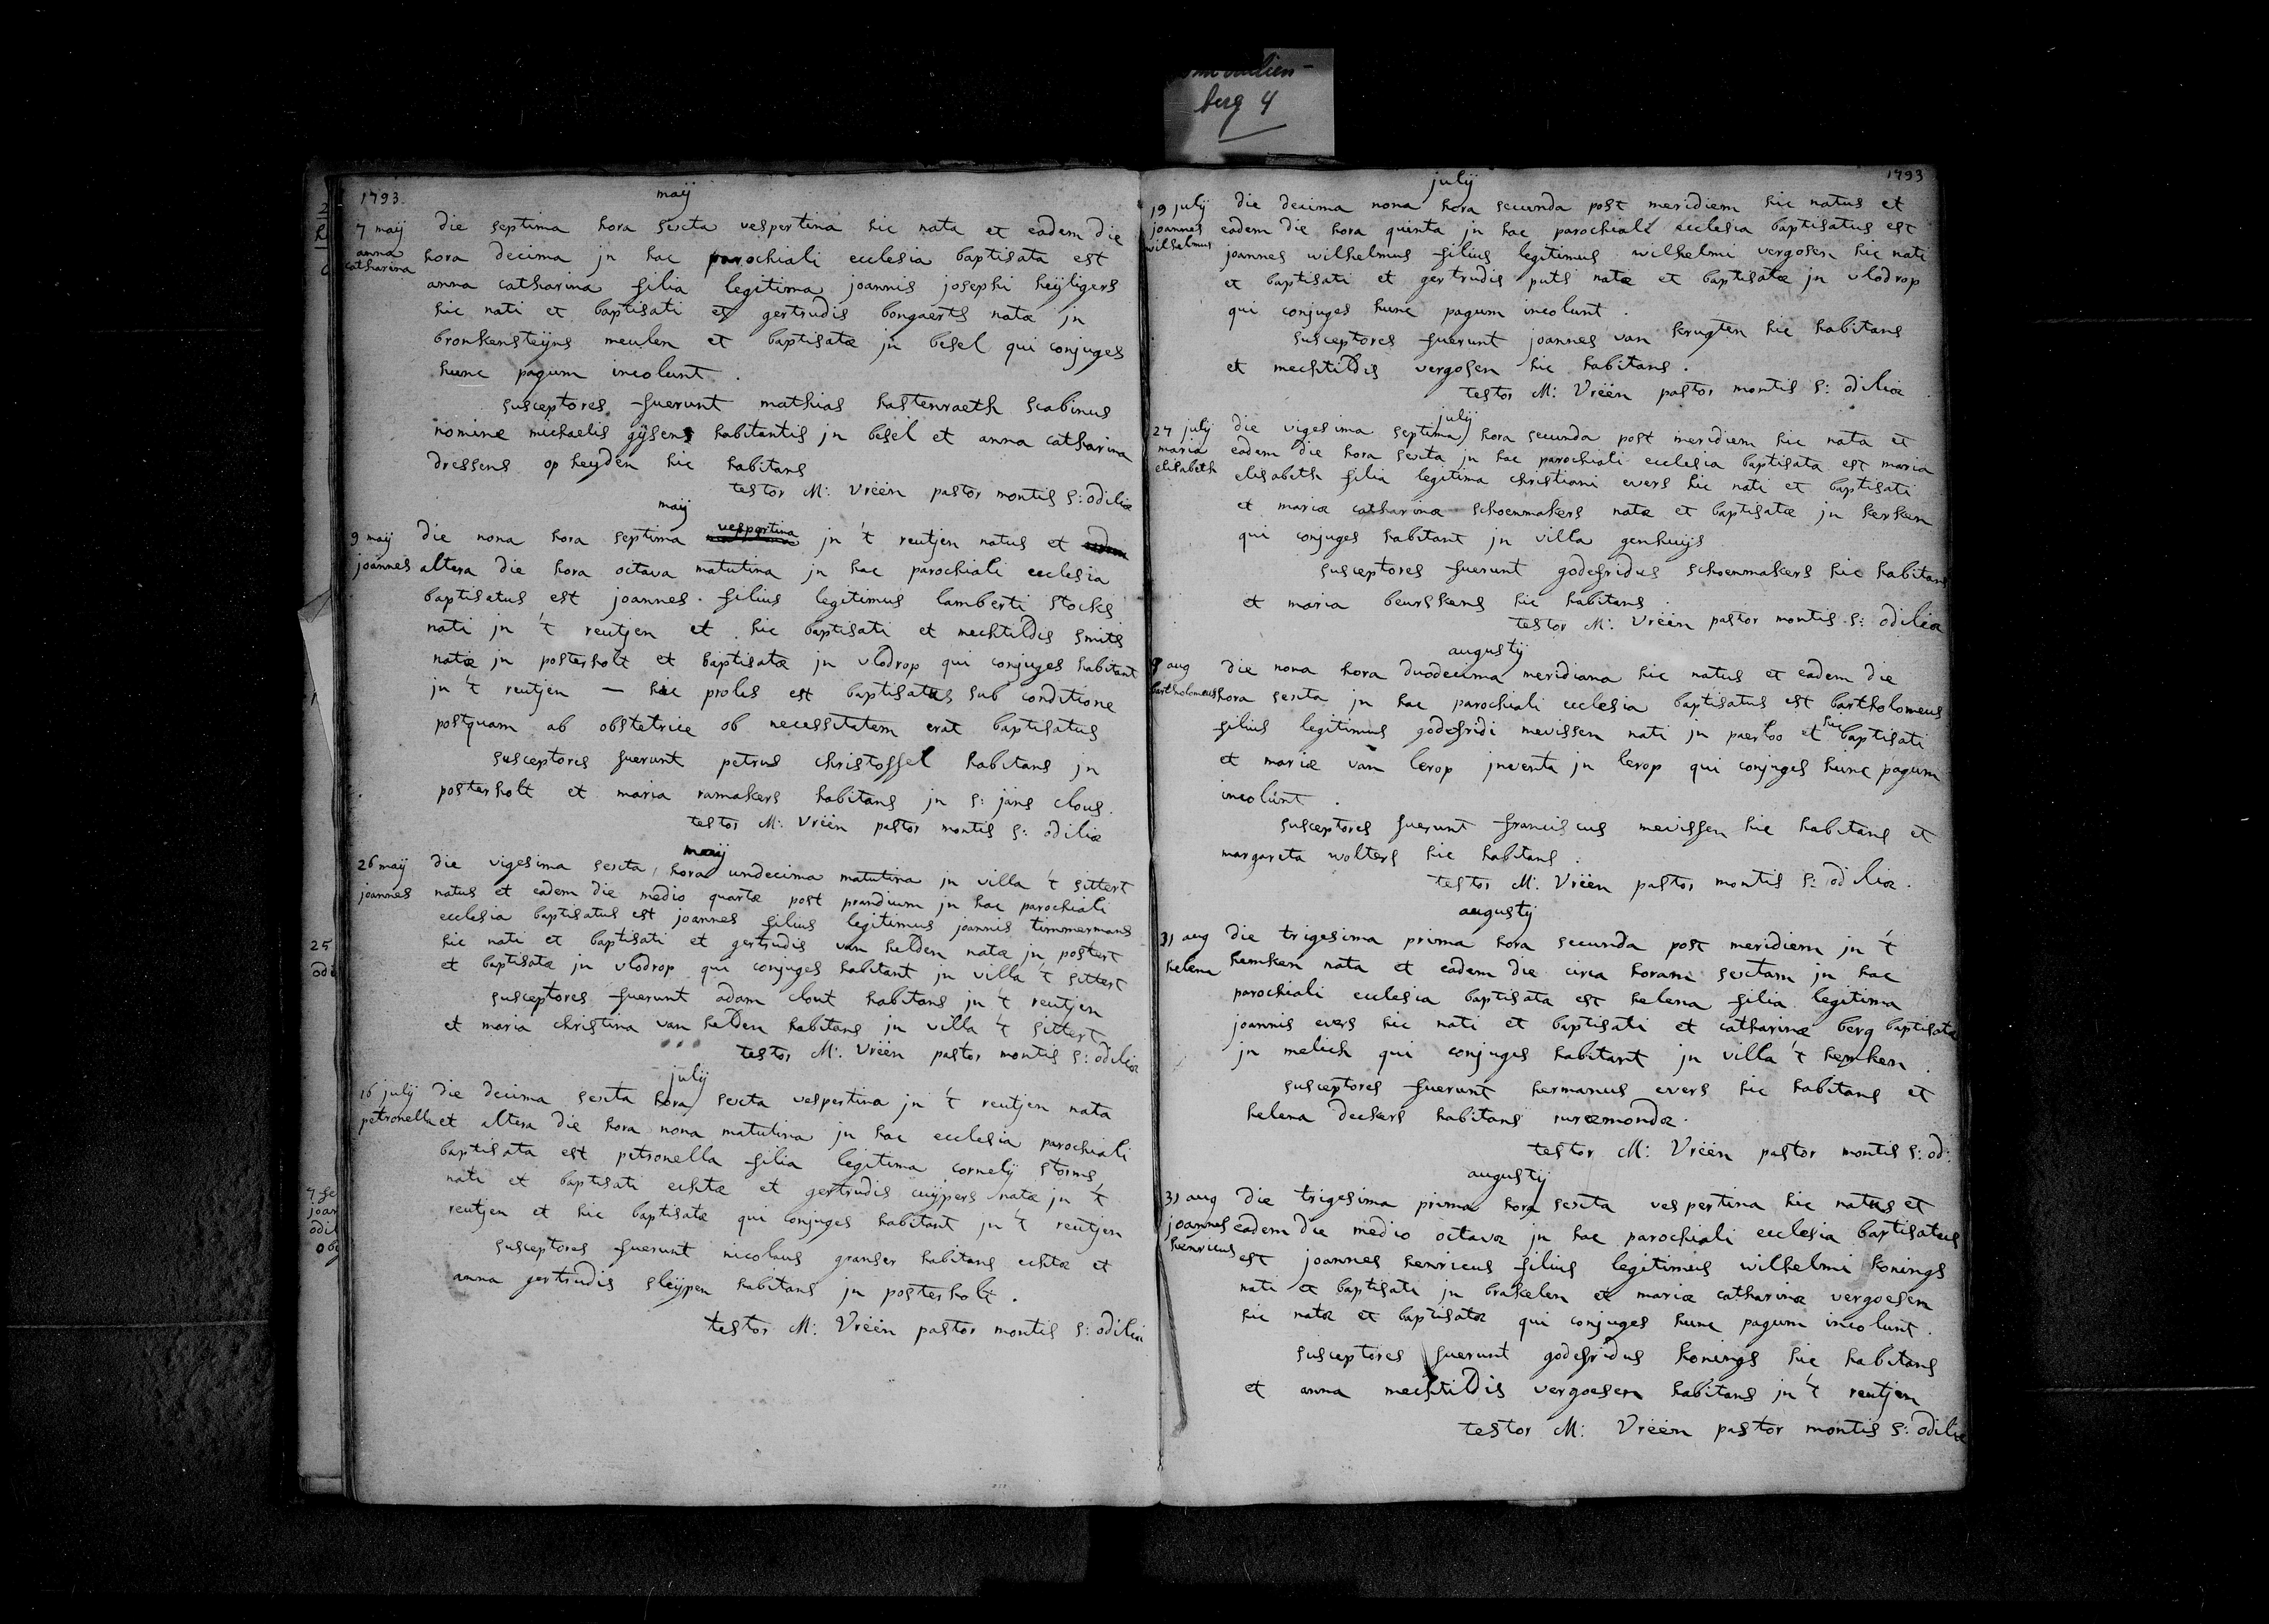 berg 4
1793.
maij
7 maij
anna
catharina
die septima hora sexta vespertina hic nata et eadem die
hora decima jn hac parochiali ecclesia baptisata est
anna catharina filia legitima joannis josephi heijligers
hic nati et baptisati et gertrudis bongaerts nata jn
bronkensteijns meulen et baptisatæ jn besel qui conjuges
hunc pagum incolunt.
susceptores fuerunt mathias hastenraeth scabinus
nomine michaelis gijsens habitantis jn besel et anna catharina
dressens op heyden hic habitans
testor M: Vrëën pastor montis s: odiliæ
maij
9 maij
joannes
die nona hora septima vespertina jn 't reutjen natus et
altera die hora octava matutina jn hac parochiali ecclesia
baptisatus est joannes filius legitimus lamberti stocks
nati jn 't reutjen et hic baptisati et mechtildis smits
natæ jn posterholt et baptisatæ jn vlodrop qui conjuges habitant
jn 't reutjen — hic proles est baptisatus sub conditione
postquam ab obstetrice ob necessitatem erat baptisatus
susceptores fuerunt petrus christoffel habitans jn
posterholt et maria ramakers habitans jn s: jans clous.
testor M: Vrëën pastor montis s: odiliæ
maij
26 maij
joannes
die vigesima sexta, hora undecima matutina jn villa 't sittert
natus et eadem die medio quartæ post prandium jn hac parochiali
ecclesia baptisatus est joannes filius legitimus joannis timmermans
hic nati et baptisati et gertrudis van helden natæ jn postert
et baptisatæ jn vlodrop qui conjuges habitant jn villa 't sittert
susceptores fuerunt adam clout habitans jn 't reutjen
et maria christina van helden habitans jn villa 't sittert
testor M: Vrëën pastor montis s: odiliæ
julij
16 julij
petronella
die decima sexta hora sexta vespertina jn 't reutjen nata
et altera die hora nona matutina jn hac ecclesia parochiali
baptisata est petronella filia legitima cornelij storms
nati et baptisati echtæ et gertrudis cuijpers natæ jn 't
reutjen et hic baptisatæ qui conjuges habitant jn 't reutjen
susceptores fuerunt nicolaus granser habitans echtæ et
anna gertrudis sleijpen habitans jn posterholt.
testor M: Vrëën pastor montis s: odiliæ
1793
julij
19 julij
joannes
wilhelmus
die decima nona hora secunda post meridiem hic natus et
eadem die hora quinta jn hac parochiali ecclesia baptisatus est
joannes wilhelmus filius legitimus wilhelmi vergosen hic nati
et baptisati et gertrudis puts natæ et baptisatæ jn vlodrop
qui conjuges hunc pagum incolunt.
susceptores fuerunt joannes van krugten hic habitans
et mechtildis vergosen hic habitans.
testor M: Vrëën pastor montis s: odiliæ
julij
27 julij
maria
elisabeth
die vigesima septima hora secunda post meridiem hic nata et
eadem die hora sexta jn hac parochiali ecclesia baptisata est maria
elisabeth filia legitima christiani evers hic nati et baptisati
et mariæ catharinæ schoenmakers natæ et baptisatæ jn kerken
qui conjuges habitant jn villa genhuijs
susceptores fuerunt godefridus schoenmakers hic habitans
et maria beurskens hic habitans.
testor M: Vrëën pastor montis s: odiliæ
augustij
9 aug
bartholomeus
die nona hora duodecima meridiana hic natus et eadem die
hora sexta jn hac parochiali ecclesia baptisatus est bartholomeus
filius legitimus godefridi mevissen nati jn paerloo et hic baptisati
et mariæ van lerop jnventa jn lerop qui conjuges hunc pagum
incolunt.
susceptores fuerunt franciscus mevissen hic habitans et
margareta wolters hic habitans.
testor M: Vrëën pastor montis s: odiliæ.
augustij
31 aug
helena
die trigesima prima hora secunda post meridiem jn 't
hemken nata et eadem die circa horam sextam jn hac
parochiali ecclesia baptisata est helena filia legitima
joannis evers hic nati et baptisati et catharinæ berg baptisatæ
jn melich qui conjuges habitant jn villa 't hemken.
susceptores fuerunt hermanus evers hic habitans et
helena deckers habitans ruræmondæ.
testor M: Vrëën pastor montis s: od:
augustij
31 aug
joannes
henricus
die trigesima prima hora sexta vespertina hic natus et
eadem die medio octavæ jn hac parochiali ecclesia baptisatus
est joannes henricus filius legitimus wilhelmi konings
nati et baptisati jn brakelen et mariæ catharinæ vergoesen
hic natæ et baptisatæ qui conjuges hunc pagum incolunt.
susceptores fuerunt godefridus konings hic habitans
et anna mechtildis vergoesen habitans jn 't reutjen
testor M: Vrëën pastor montis s: odiliæ